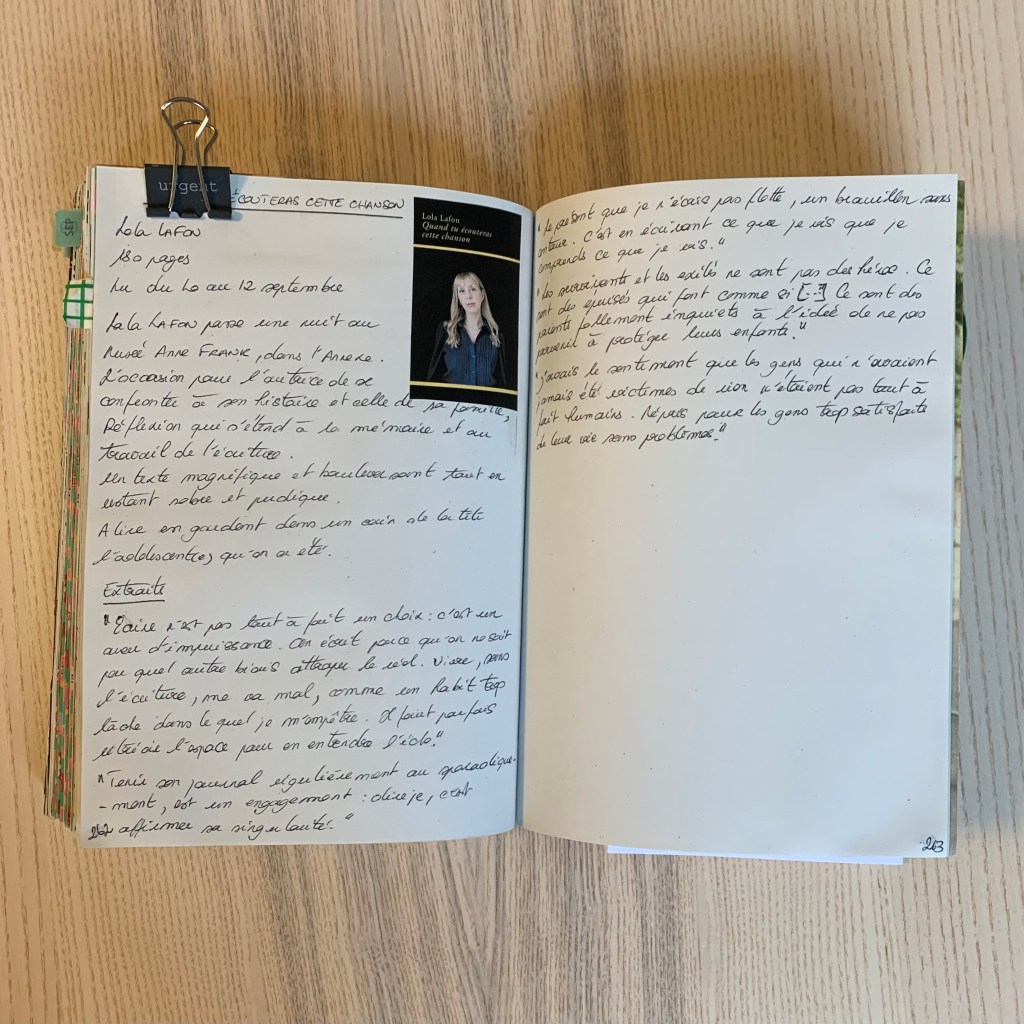 urgent
SEP
ÉCOUTERAS CETTE CHANSON
Lola LAFON
180 pages
Lu du 10 au 12 septembre
Lola LAFON passe une nuit au
Musée Anne FRANK, dans l'Annexe.
L'occasion pour l'autrice de se
confronter à son histoire et celle de sa famille,
Réflexion qui s'étend à la mémoire et au
travail de l'écriture.
Un texte magnifique et bouleversant tout en
restant sobre et pudique.
A lire en gardant dans un coin de la tête
l'adolescent(e) qu'on a été.
Extraits
"Écrire n'est pas tout à fait un choix : c'est un
aveu d'impuissance. On écrit parce qu'on ne sait
par quel autre biais attraper le réel. Vivre, sans
l'écriture, me va mal, comme un habit trop
lâche dans lequel je m'empêtre. Il faut parfois
rétrécir l'espace pour en entendre l'écho."
"Tenir son journal régulièrement ou sporadique-
-ment, est un engagement : dire je, c'est
affirmer sa singularité."
262
Lola Lafon
Quand tu écouteras
cette chanson
"Le présent que je n'écris pas flotte, un brouillon sans
contour. C'est en écrivant ce que je vis que je
comprends ce que je vis."
"Les survivants et les exilés ne sont pas des héros. Ce
sont des épuisés qui font comme si [...] Ce sont des
parents follement inquiets à l'idée de ne pas
parvenir à protéger leurs enfants."
"J'avais le sentiment que les gens qui n'avaient
jamais été victimes de rien n'étaient pas tout à
fait humains. Mépris pour les gens trop satisfaits
de leur vie sans problèmes."
263